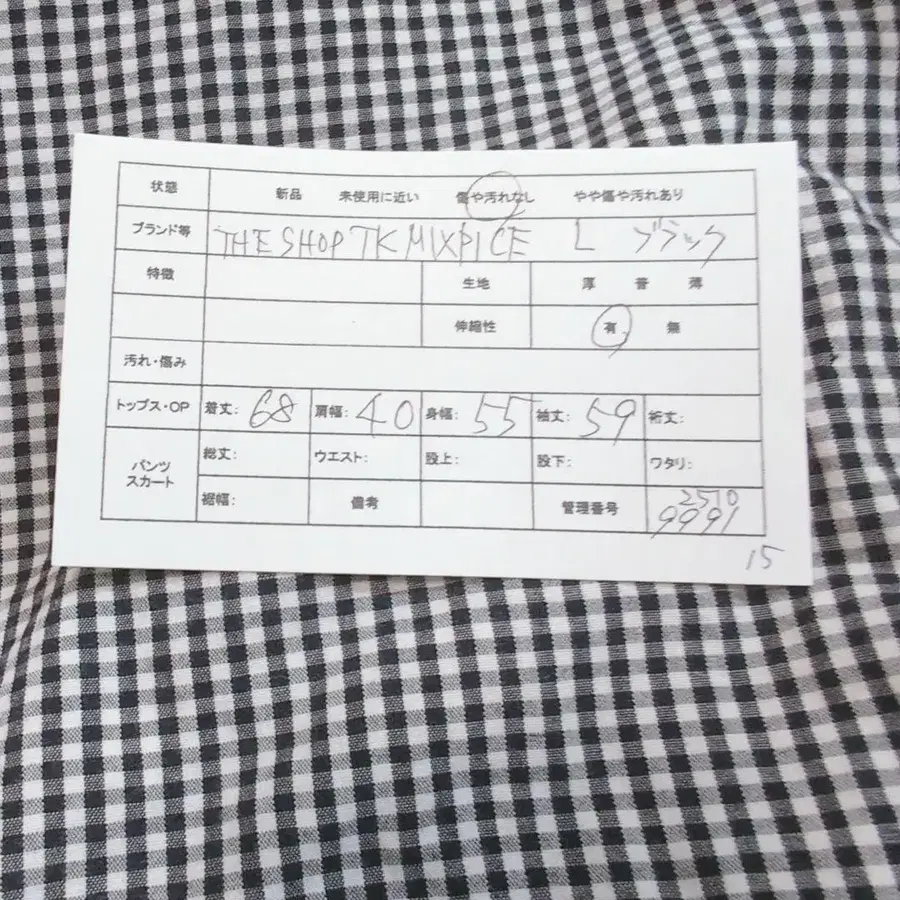 状態 新品 未使用に近い 傷や汚れなし やや傷や汚れあり
ブランド等 THE SHOP TK MIXPICE L ブラック
特徴 生地 厚 普 薄
伸縮性 有 無
汚れ・傷み
トップス・OP 着丈: 68 肩幅: 40 身幅: 55 袖丈: 59 裄丈:
パンツ スカート 総丈: ウエスト: 股上: 股下: ワタリ:
裾幅: 備考 管理番号 2510 9991
15